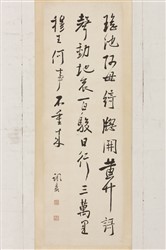 瑤池阿母綺窗開黃竹詩
聲動地哀八駿日行三萬里
穆王何事不重來